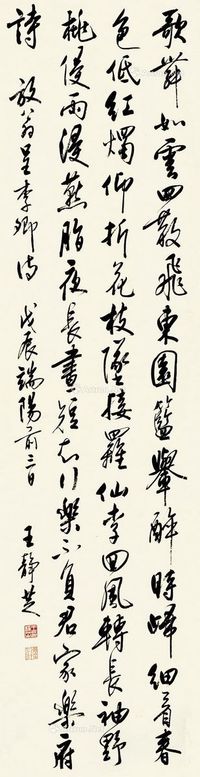 歌舞如雲四散飛東園籃轝醉時歸細看春
色低紅燭仰折花枝墜接羅仙李回風轉長袖野
桃侵雨浸燕脂夜長晝短知行樂不負君家樂府
詩 放翁呈李卿詩 戊辰端陽前三日 王靜芝